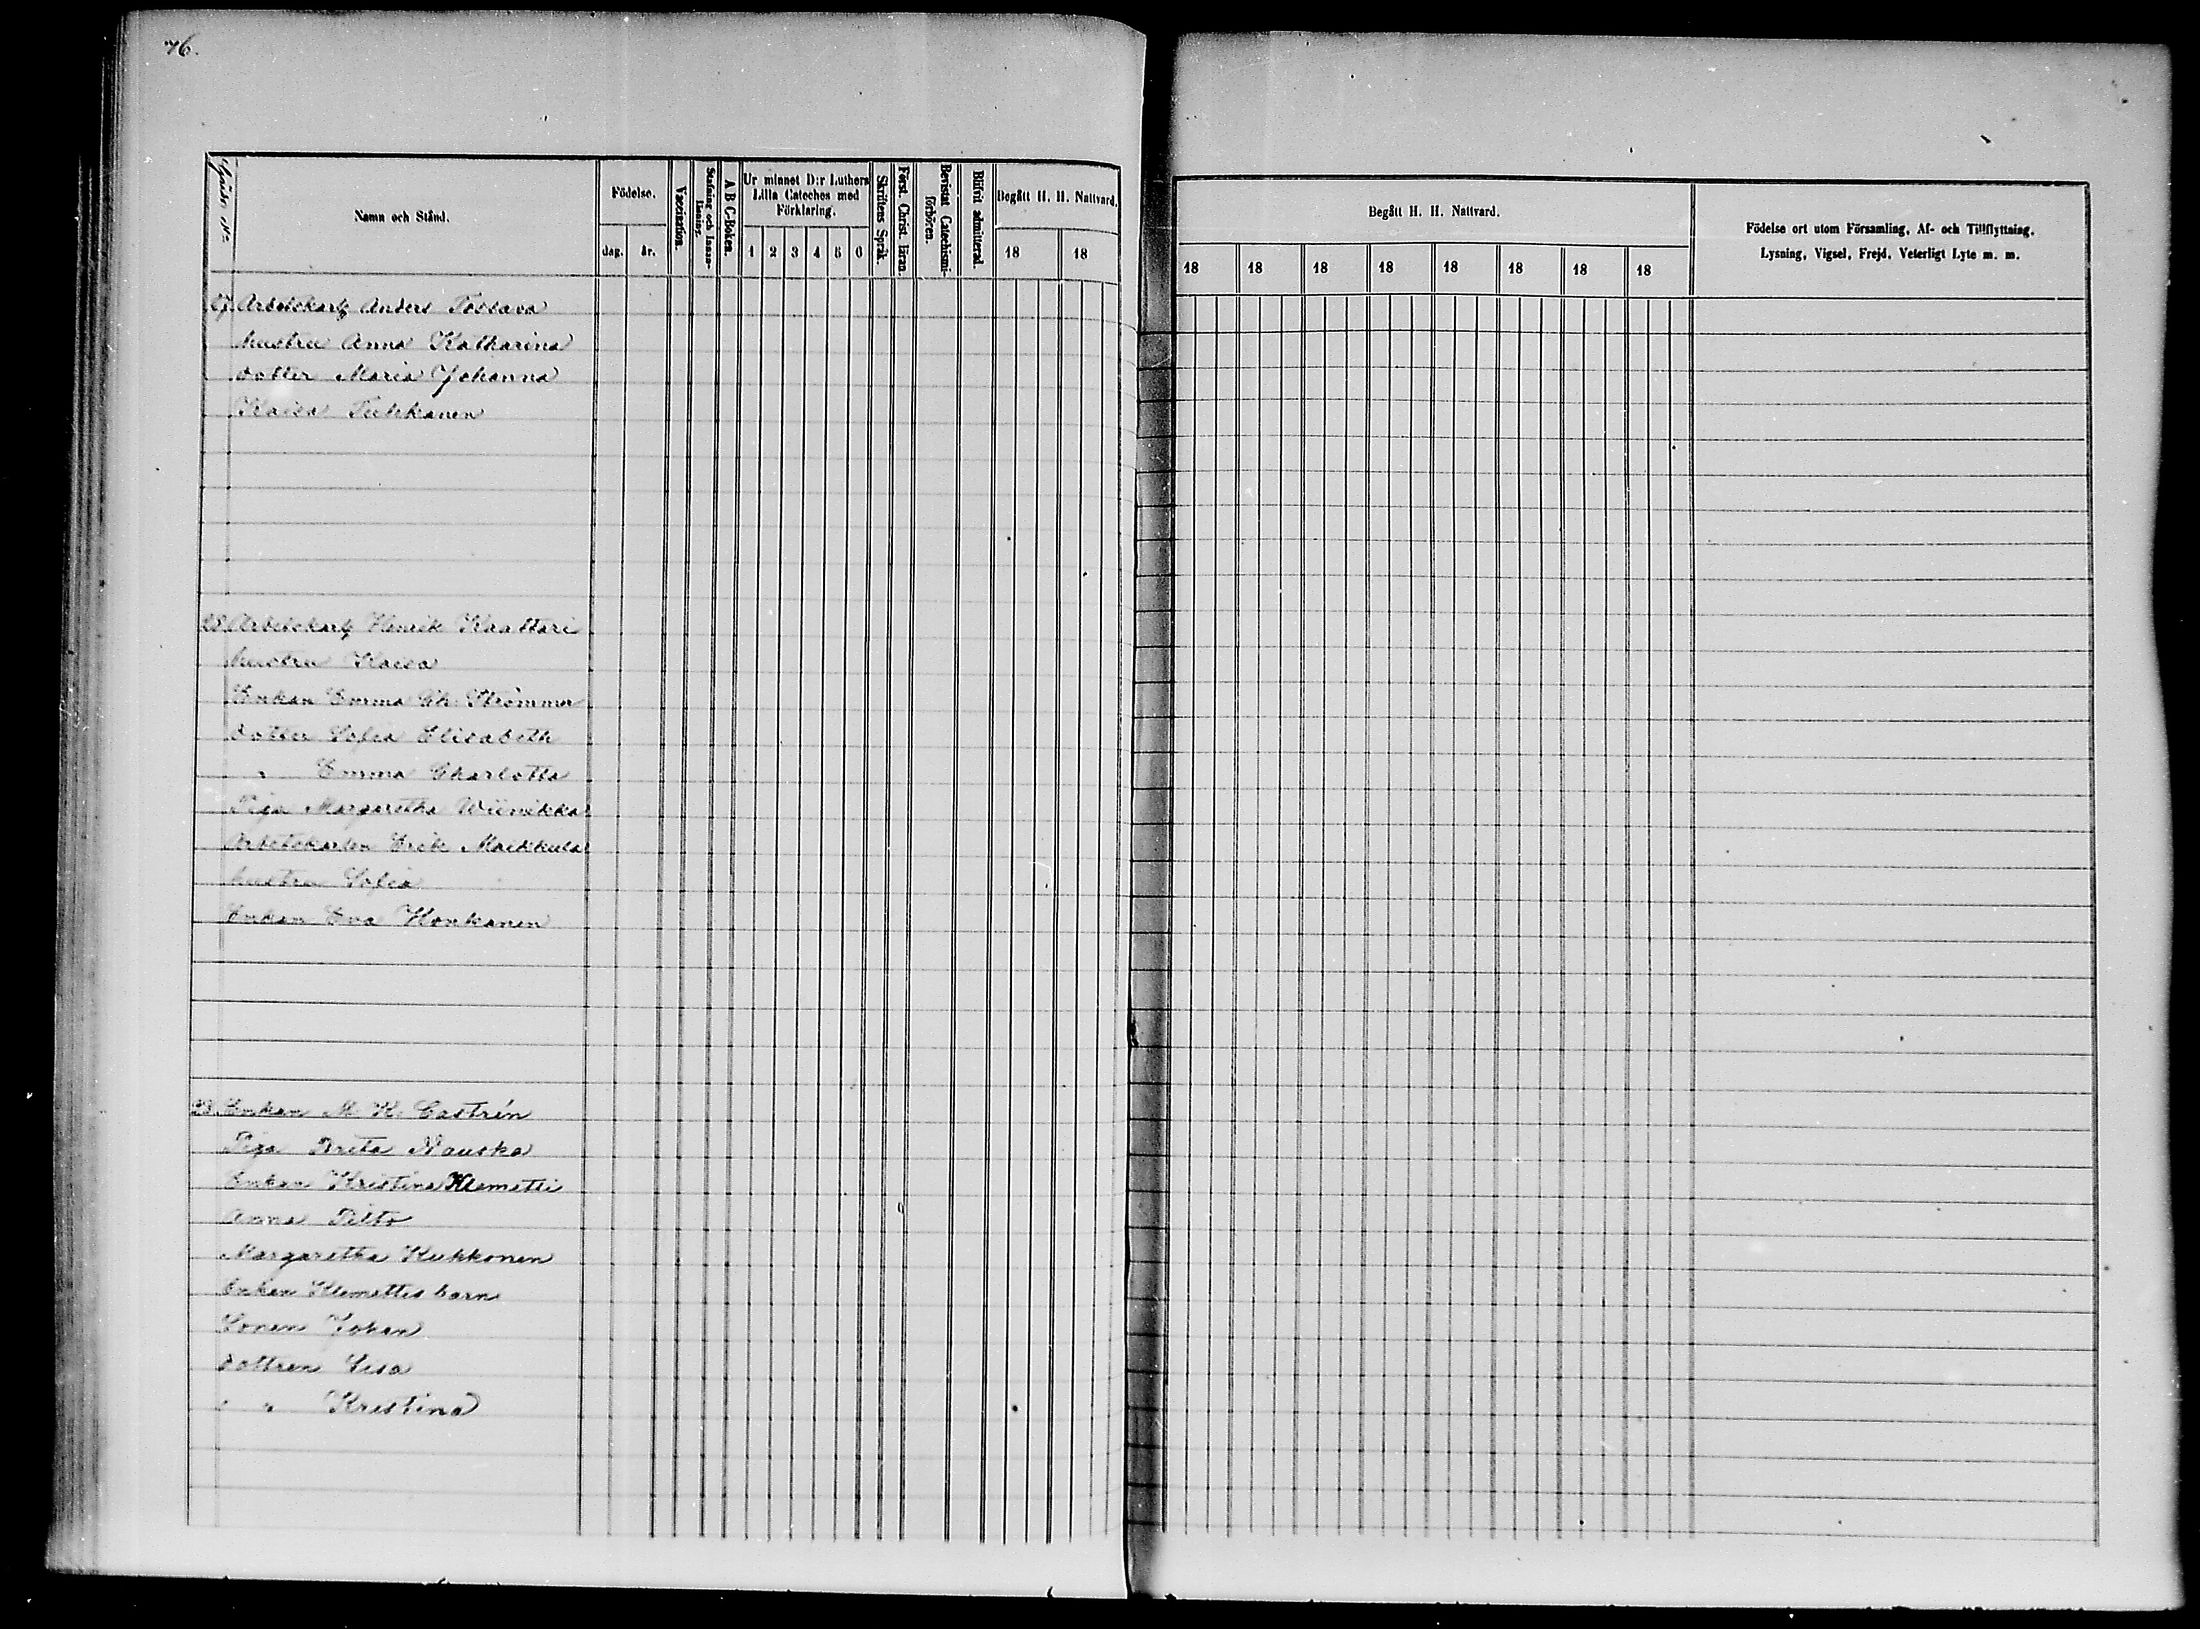 76.
Gårds No
Namn och Stånd.
Födelse.
dag.
år.
Vaccination.
Stafning och Innan-
läsning.
A B C-Boken.
Ur minnet D:r Luthers
Lilla Cateches med
Förklaring.
1 2 3 4 5 6
Skriftens Språk.
Först. Christ. läran.
Bevistat Catechismi-
förhören.
Blifvit admitterad.
Begått H. H. Nattvard.
18 18
Begått H. H. Nattvard.
18 18 18 18 18 18 18 18
Födelse ort utom Församling, Af- och Tillflyttning.
Lysning, Vigsel, Frejd, Veterligt Lyte m. m.
27. Arbetskarlg Anders Tossava
hustru Anna Katharina
dotter Maria Johanna
Kaisa Tulkkanen
28. Arbetskarlg Henrik Kaattari
hustru Kaisa
Enkan Emma Ch. Strömmer
dotter Sofia Elisabeth
" Emma Charlotta
Piga Margaretha Wiinikka
Arbetskarlen Erik Markkula
hustru Sofia
Enkan Eva Honkanen
29. Enkan M. K. Castrén
Piga Brita Nauska
Enkan Kristina Klemetti
Anna Pelto
Margaretha Kukkonen
Enkan Klemettis barn
Sonen Johan
dottren Lisa
" " Kristina